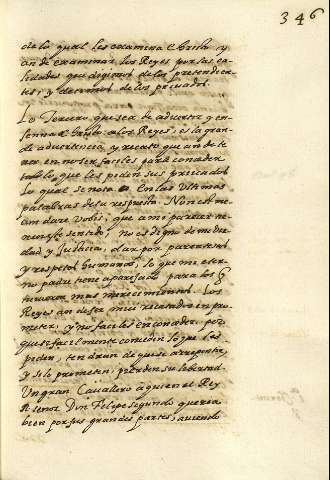 346
de lo qual les examina Christo y
an de examinar los Reyes por las ca-
lidades que dijimos de los pretendien-
tes, y de terminos de los privados.
Lo Tercero que sea de advertir y en-
senna Christo a los Reyes, es la gran
de advertencia, y recato que an de te-
ner en no ser faciles para conceder
todo lo que les piden sus privados
lo qual se nota en las ultimas
palabras de su respuesta. Non est me-
um dare vobis, que a mi parecer tie-
nen este sentido, no es digno de mi Bon
dad y Justicia, dar por parentesco
y respetos humanos, lo que mi eter-
no padre tiene aparejado para los q
tuvieron mas merecimientos. Los
Reyes an de ser mui recatados en pro-
meter, y no faciles en conceder. por
que si facilmente conceden lo que les
piden, tendran de que se arrepentir,
y si lo prometen, pierden su libertad.
Un gran Cavallero a quien el Rey
N. senor Don Felipe segundo queria
bien por sus grandes partes, aviendo